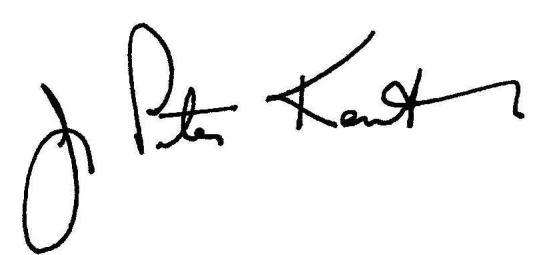 J Peter Kent